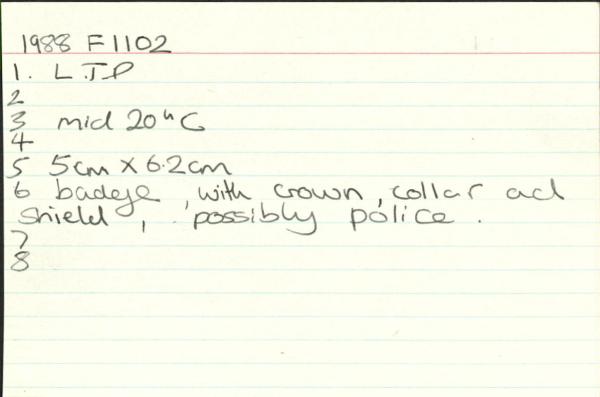 1988 F1102
1. L.T.P
2
3 mid 20th C
4
5 5cm x 6.2cm
6 badge, with crown, collar ad
shield, possibly police.
7
8